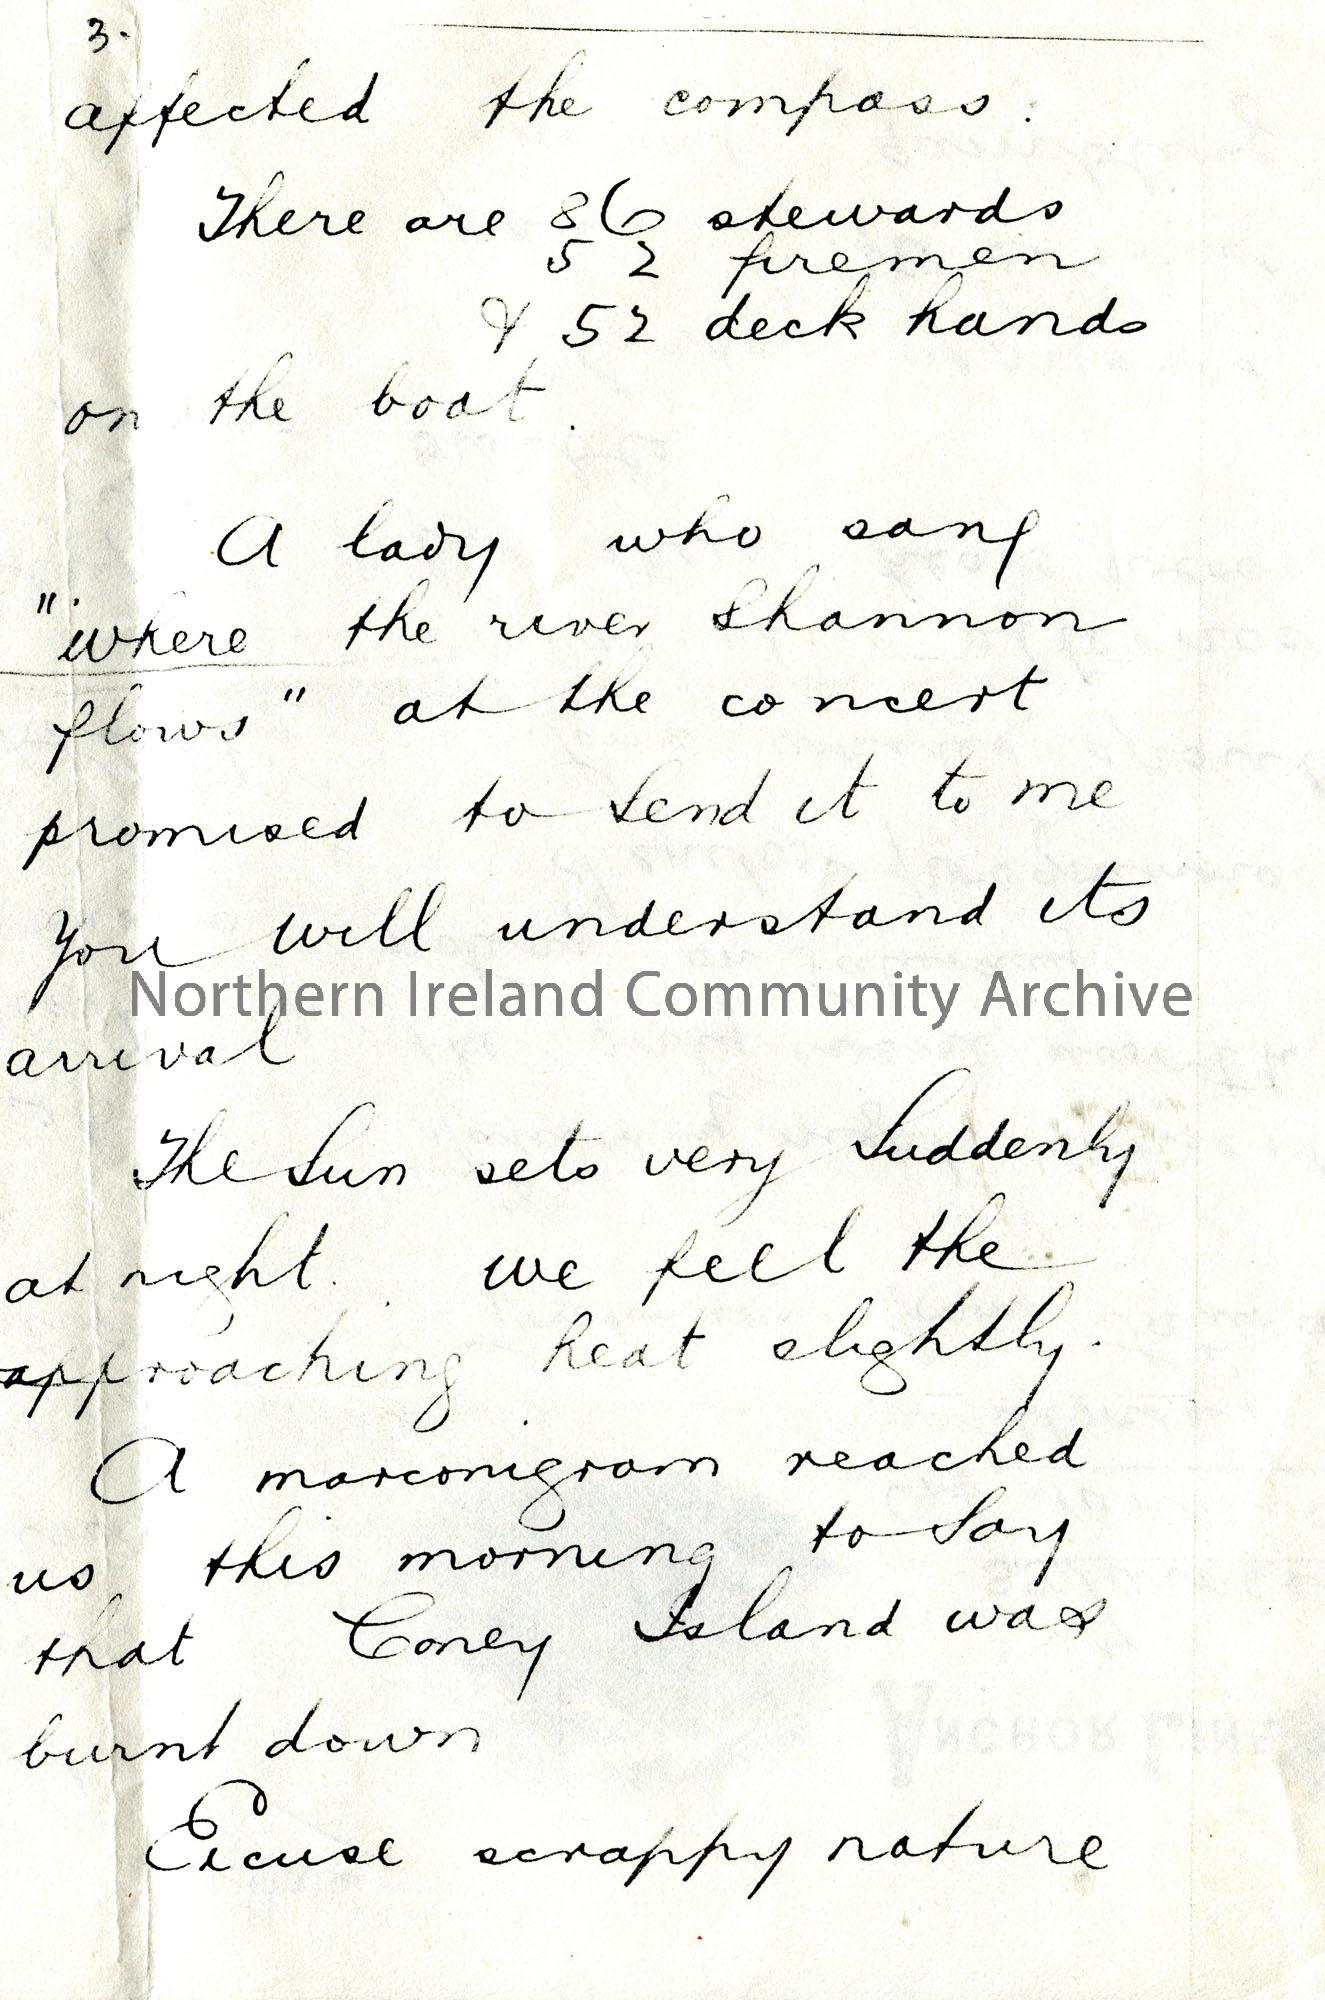 3.
affected the compass.
There are 86 stewards
52 firemen
& 52 deck hands
on the boat.
A lady who sang
"where the river Shannon
flows" at the concert
promised to send it to me
You will understand its
Northern Ireland Community Archive
arrival
The Sun sets very Suddenly
at night. we feel the
approaching heat slightly.
A marconigram reached
us this morning to Say
that Coney Island was
burnt down
Excuse scrappy nature
ANCHOR LINE